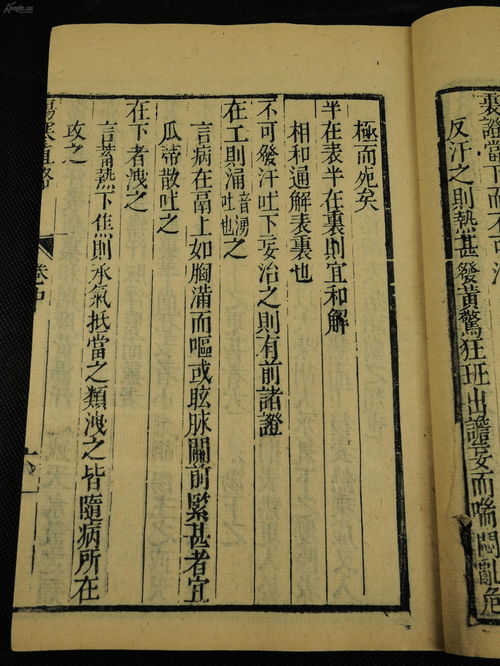 裏證當下而不可
反汗之則熱甚發黃驚狂班出譫妄而喘悶亂危
極而死矣
半在表半在裏則宜和解
相和通解表裏也
不可發汗吐下妄治之則有前諸證
在工則涌音湧吐也之
言病在鬲上如胸滿而嘔或眩脉關前緊甚者宜
瓜蒂散吐之
在下者洩之
言蓄熱下焦則承氣抵當之類洩之皆隨病所在
攻之
傷寒直格 卷中